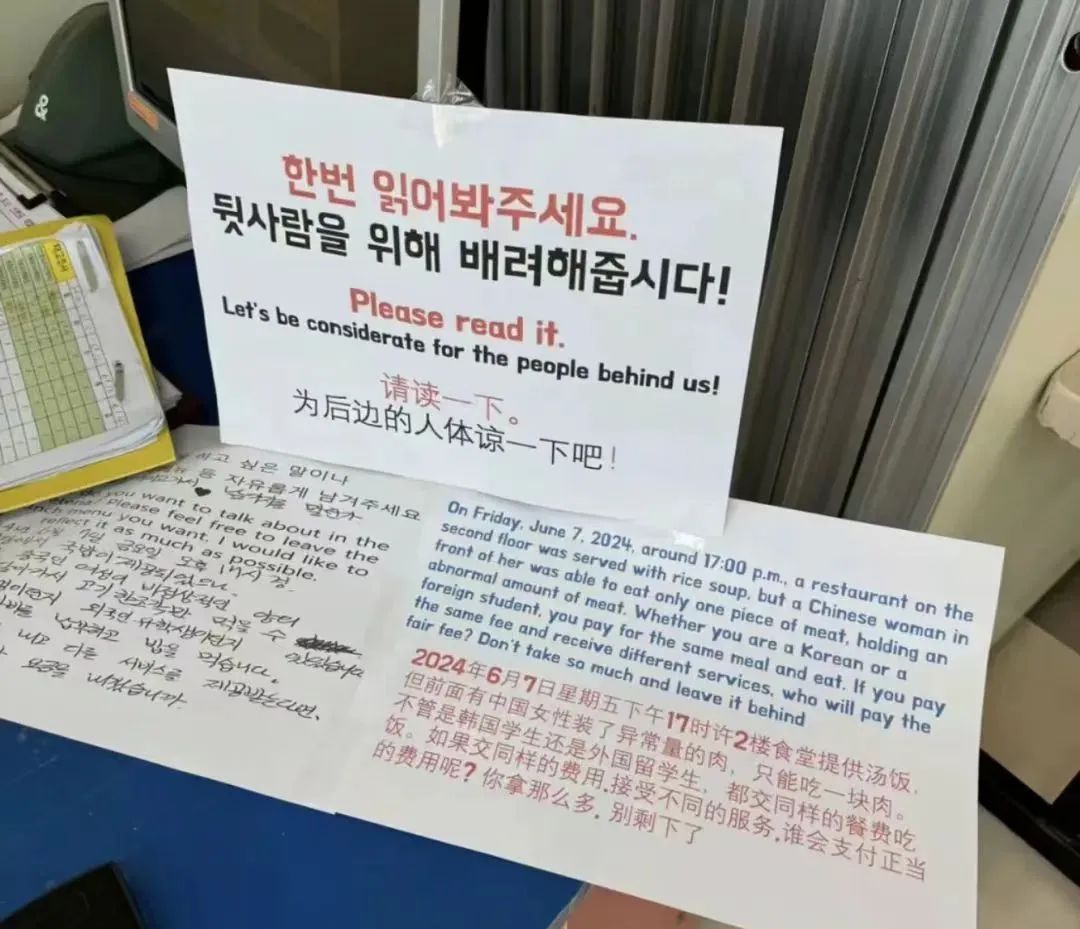 한번 읽어봐주세요.
뒷사람을 위해 배려해줍시다!
Please read it.
Let's be considerate for the people behind us!
请读一下。
为后边的人体谅一下吧!
&
하고 싶은 말이나
등 자유롭게 남겨주세요
you want to talk about in the
Please feel free to leave the
menu you want. I would like to
reflect it as much as possible.
7일 금요일 오후 17시 경
국밥이 제공되었으나
중국인 여성이 비정상적인 양의
고기 한조각만 먹을 수
외국인 유학생이던지
납부하고 밥을 먹습니다.
내고 다른 서비스를 제공받는다면,
요금을 내겠습니까
On Friday, June 7, 2024, around 17:00 p.m., a restaurant on the
second floor was served with rice soup, but a Chinese woman in
front of her was able to eat only one piece of meat, holding an
abnormal amount of meat. Whether you are a Korean or a
foreign student, you pay for the same meal and eat. If you pay
the same fee and receive different services, who will pay the
fair fee? Don't take so much and leave it behind
2024年6月7日星期五下午17时许2楼食堂提供汤饭,
但前面有中国女性装了异常量的肉, 只能吃一块肉。
不管是韩国学生还是外国留学生, 都交同样的餐费吃
饭。如果交同样的费用,接受不同的服务,谁会支付正当
的费用呢? 你拿那么多, 别剩下了